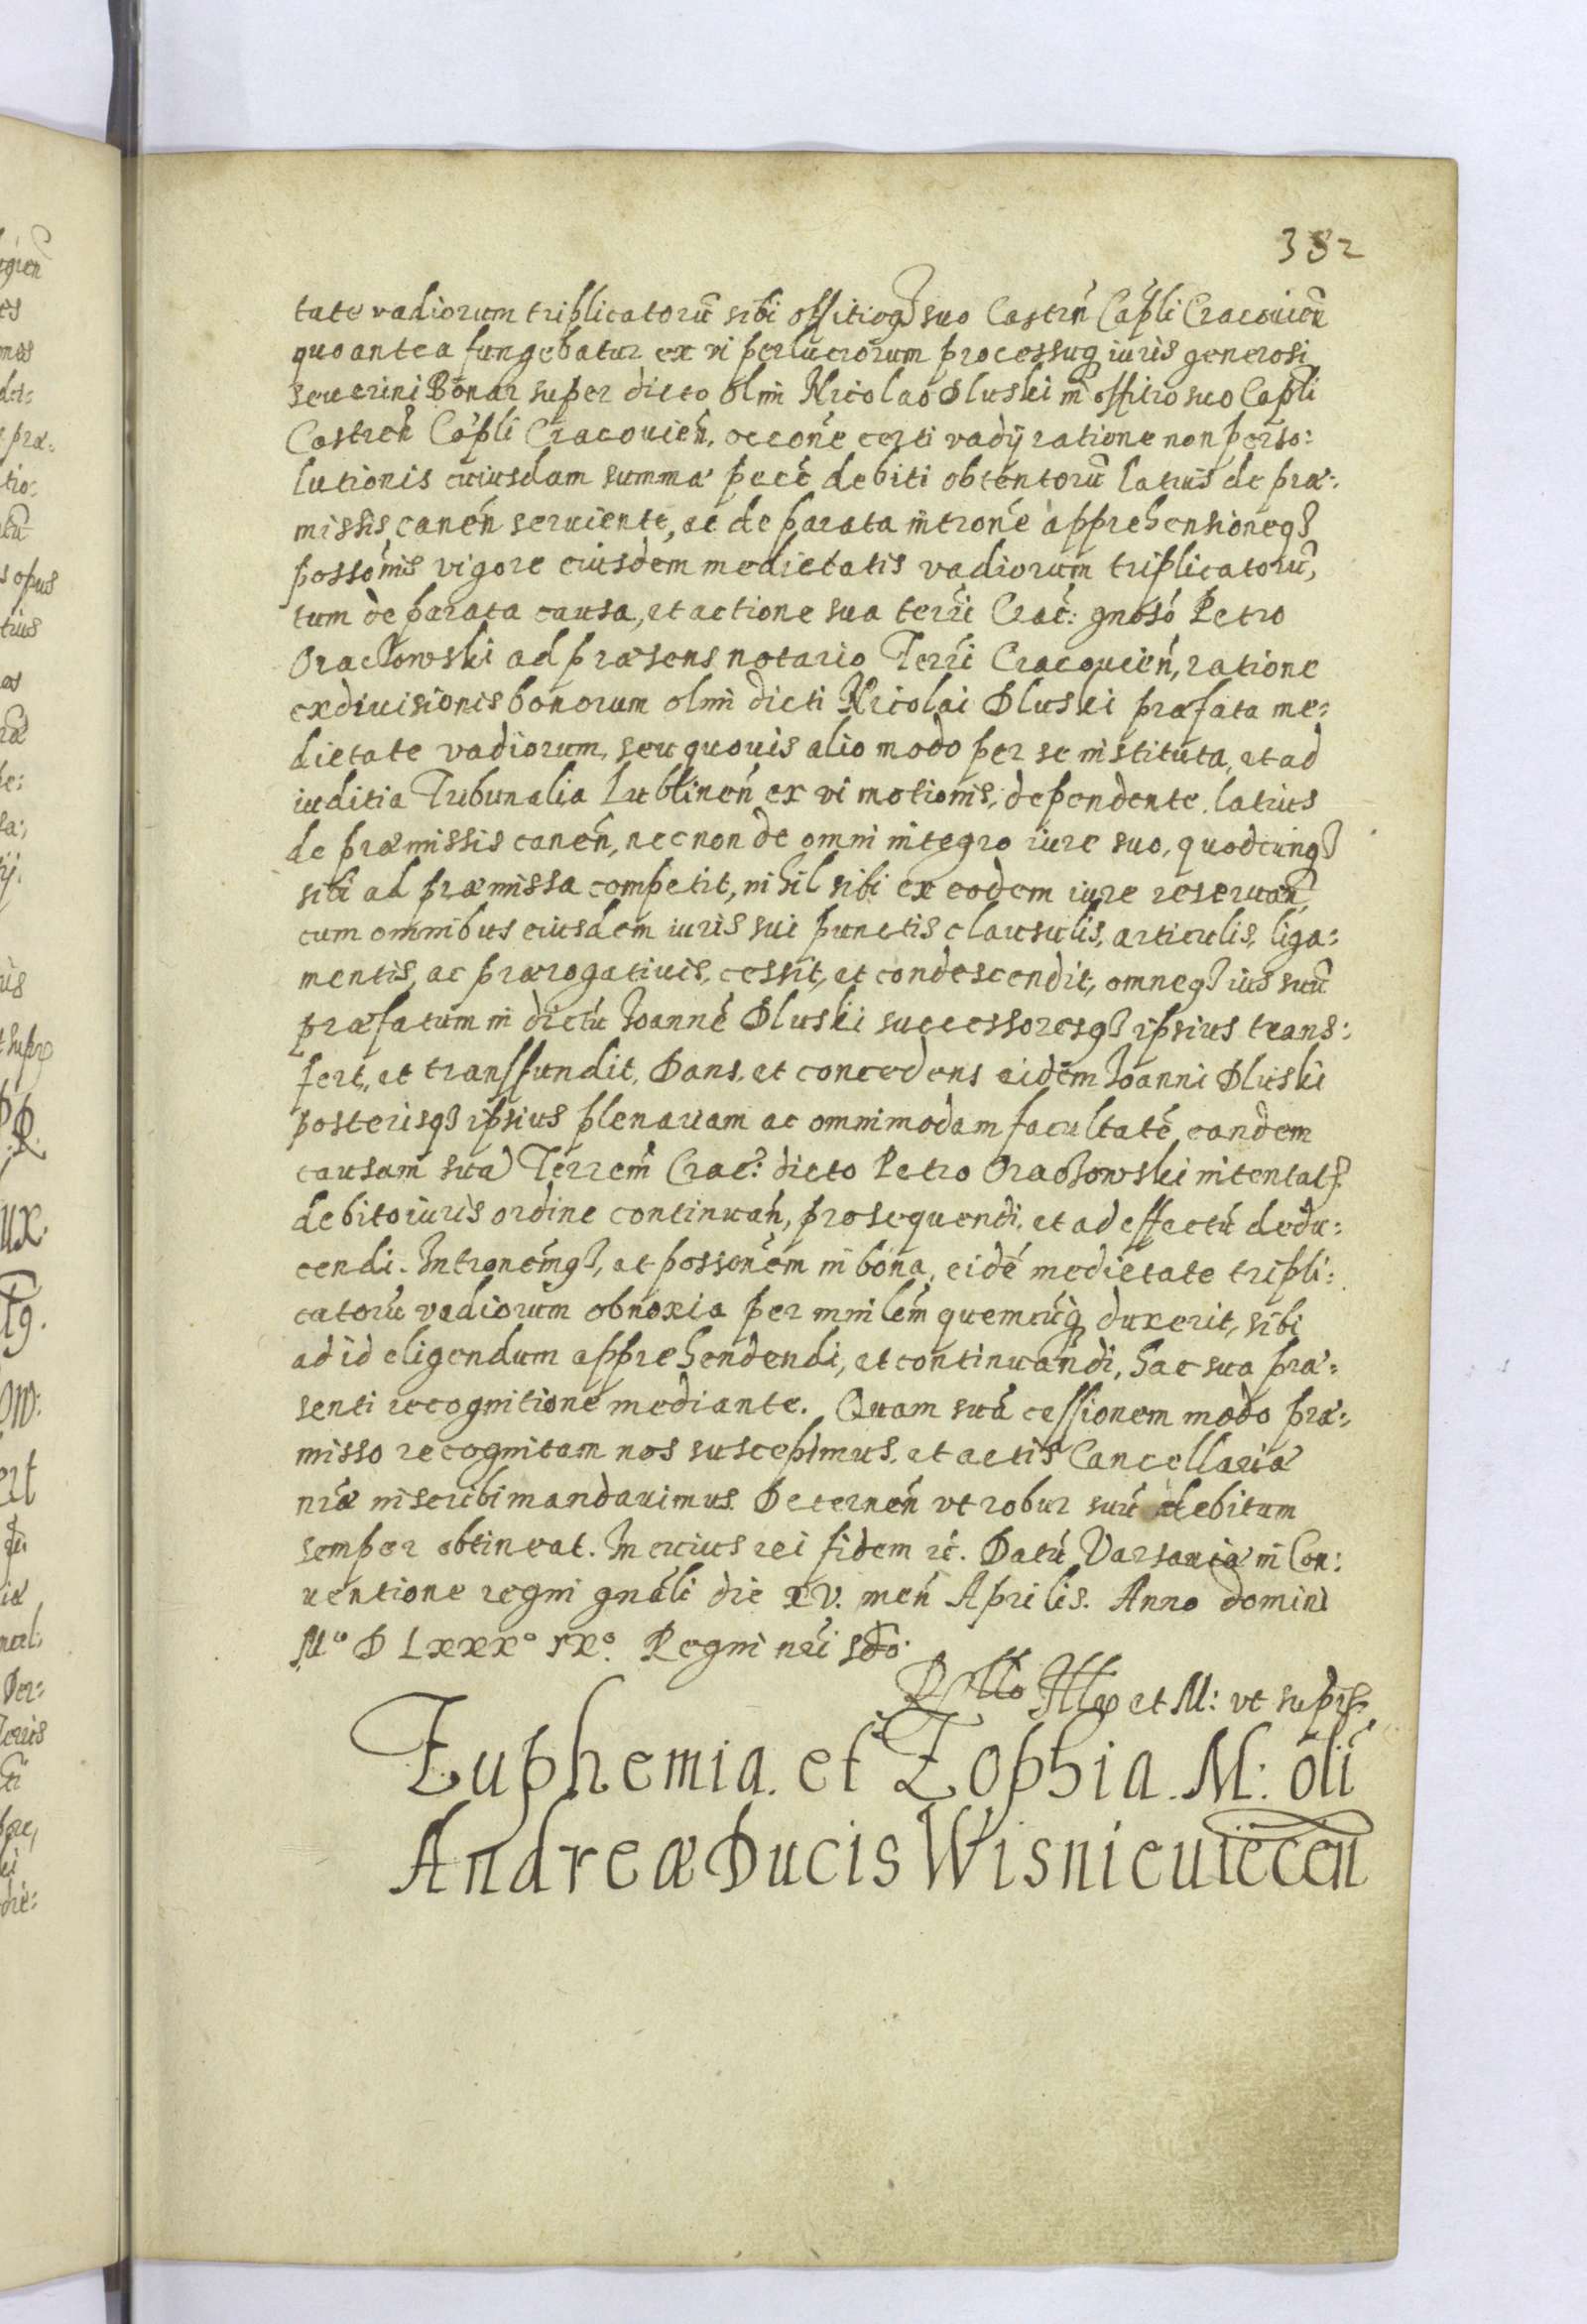 382
tate vadiorum triplicatorũ sibi offitioq3 suo Castrñ Cap̃li Cracouieñ
quo antea fungebatur ex vi perlucrorum processuq iuris generosi
seuerini Bonar super dicto olim Nicolao Dluski in offitio suo Cap̃li
Castreñ Cap̃li Cracouień, occoñe certi vadij ratione non perso:
lutionis cuiusdam summæ pecć debiti obtentorũ latius de præ:
missis caneń seruiente, ac de parata introńe apprehensioneq3
possońis vigore eiusdem medietatis vadiorum triplicatorũ,
tum de parata causa, et actione sua terri Crać: gnosó Petro
Oraczowski ad præsens notario Terri Cracouień, ratione
exdiuisionis bonorum olim dicti Nicolai Dluski præfata me:
dietate vadiorum, seu quouis alio modo per se instituta, et ad
iuditia Tribunalia Lublineń ex vi motionis, dependente. latius
de præmissis caneń, nec non de omni integro iure suo, quodcunq3
sibi ad præmissa competit, nihil sibi ex eodem iure reseruań
cum omnibus eiusdem iuris sui punctis clausulis, articulis, liga:
mentis, ac prærogatiuis, cessit, et condescendit, omneq3 ius suũ
præfatum in dictũ Joannẽ Dluski successoresq3 ipsius trans:
fert, et transfundit, Dans, et concedens eidem Joanni Dluski
posterisq3 ipsius plenariam ac omnimodam facultatẽ eandem
causam suã Terrem̃ Crać: dicto Petro Oraczowski intentat
debito iuris ordine continuań, prosequendi, et ad effectũ dedu:
cendi. Intronem̃q3, et possonem̃ in bona, eidẽ medietate tripli:
catorũ vadiorum obnoxia per minlem̃ quemcũq duxerit, sibi
ad id eligendum apprehendendi, et continuandi, hac sua præ:
senti recognitione mediante. Quam suã cessionem modo præ:
misso recognitam nos suscepimus, et actis Cancellariæ
nræ inscribi mandauimus. Decerneń vt robur suũ debitum
semper obtineat. In cuius rei fidem rć. Datũ Varsauiæ in Con:
uentione regni gnãli die xv. meń Aprilis. Anno domini
Mº D Lxxxº ixº. Regni nri sdo.
et M: vt supr
Euphemia. et Zophia. M: oli
Andreæ Ducis Wisnieuiecen